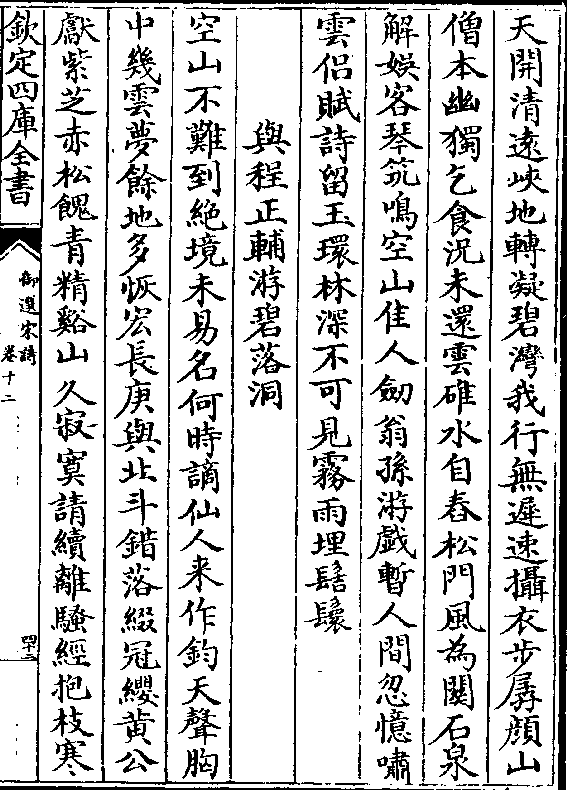 天開清遠峽地轉凝碧灣我行無遲速攝衣步孱顔山
僧本幽獨乞食況未還雲碓水自舂松門風為關石泉
解娛客琴筑鳴空山佳人劒翁孫游戲暫人間忽憶嘯
雲侣賦詩留玉環林深不可見霧雨埋髻鬟
與程正輔游碧落洞
空山不難到絶境未易名何時謫仙人来作鈞天聲胸
中幾雲夢餘地多恢宏長庚與北斗錯落綴冠纓黄公
獻紫芝赤松餽青精谿山久寂寞請續離騷經抱枝寒
欽定四庫全書
御選宋詩
卷十二
四十三